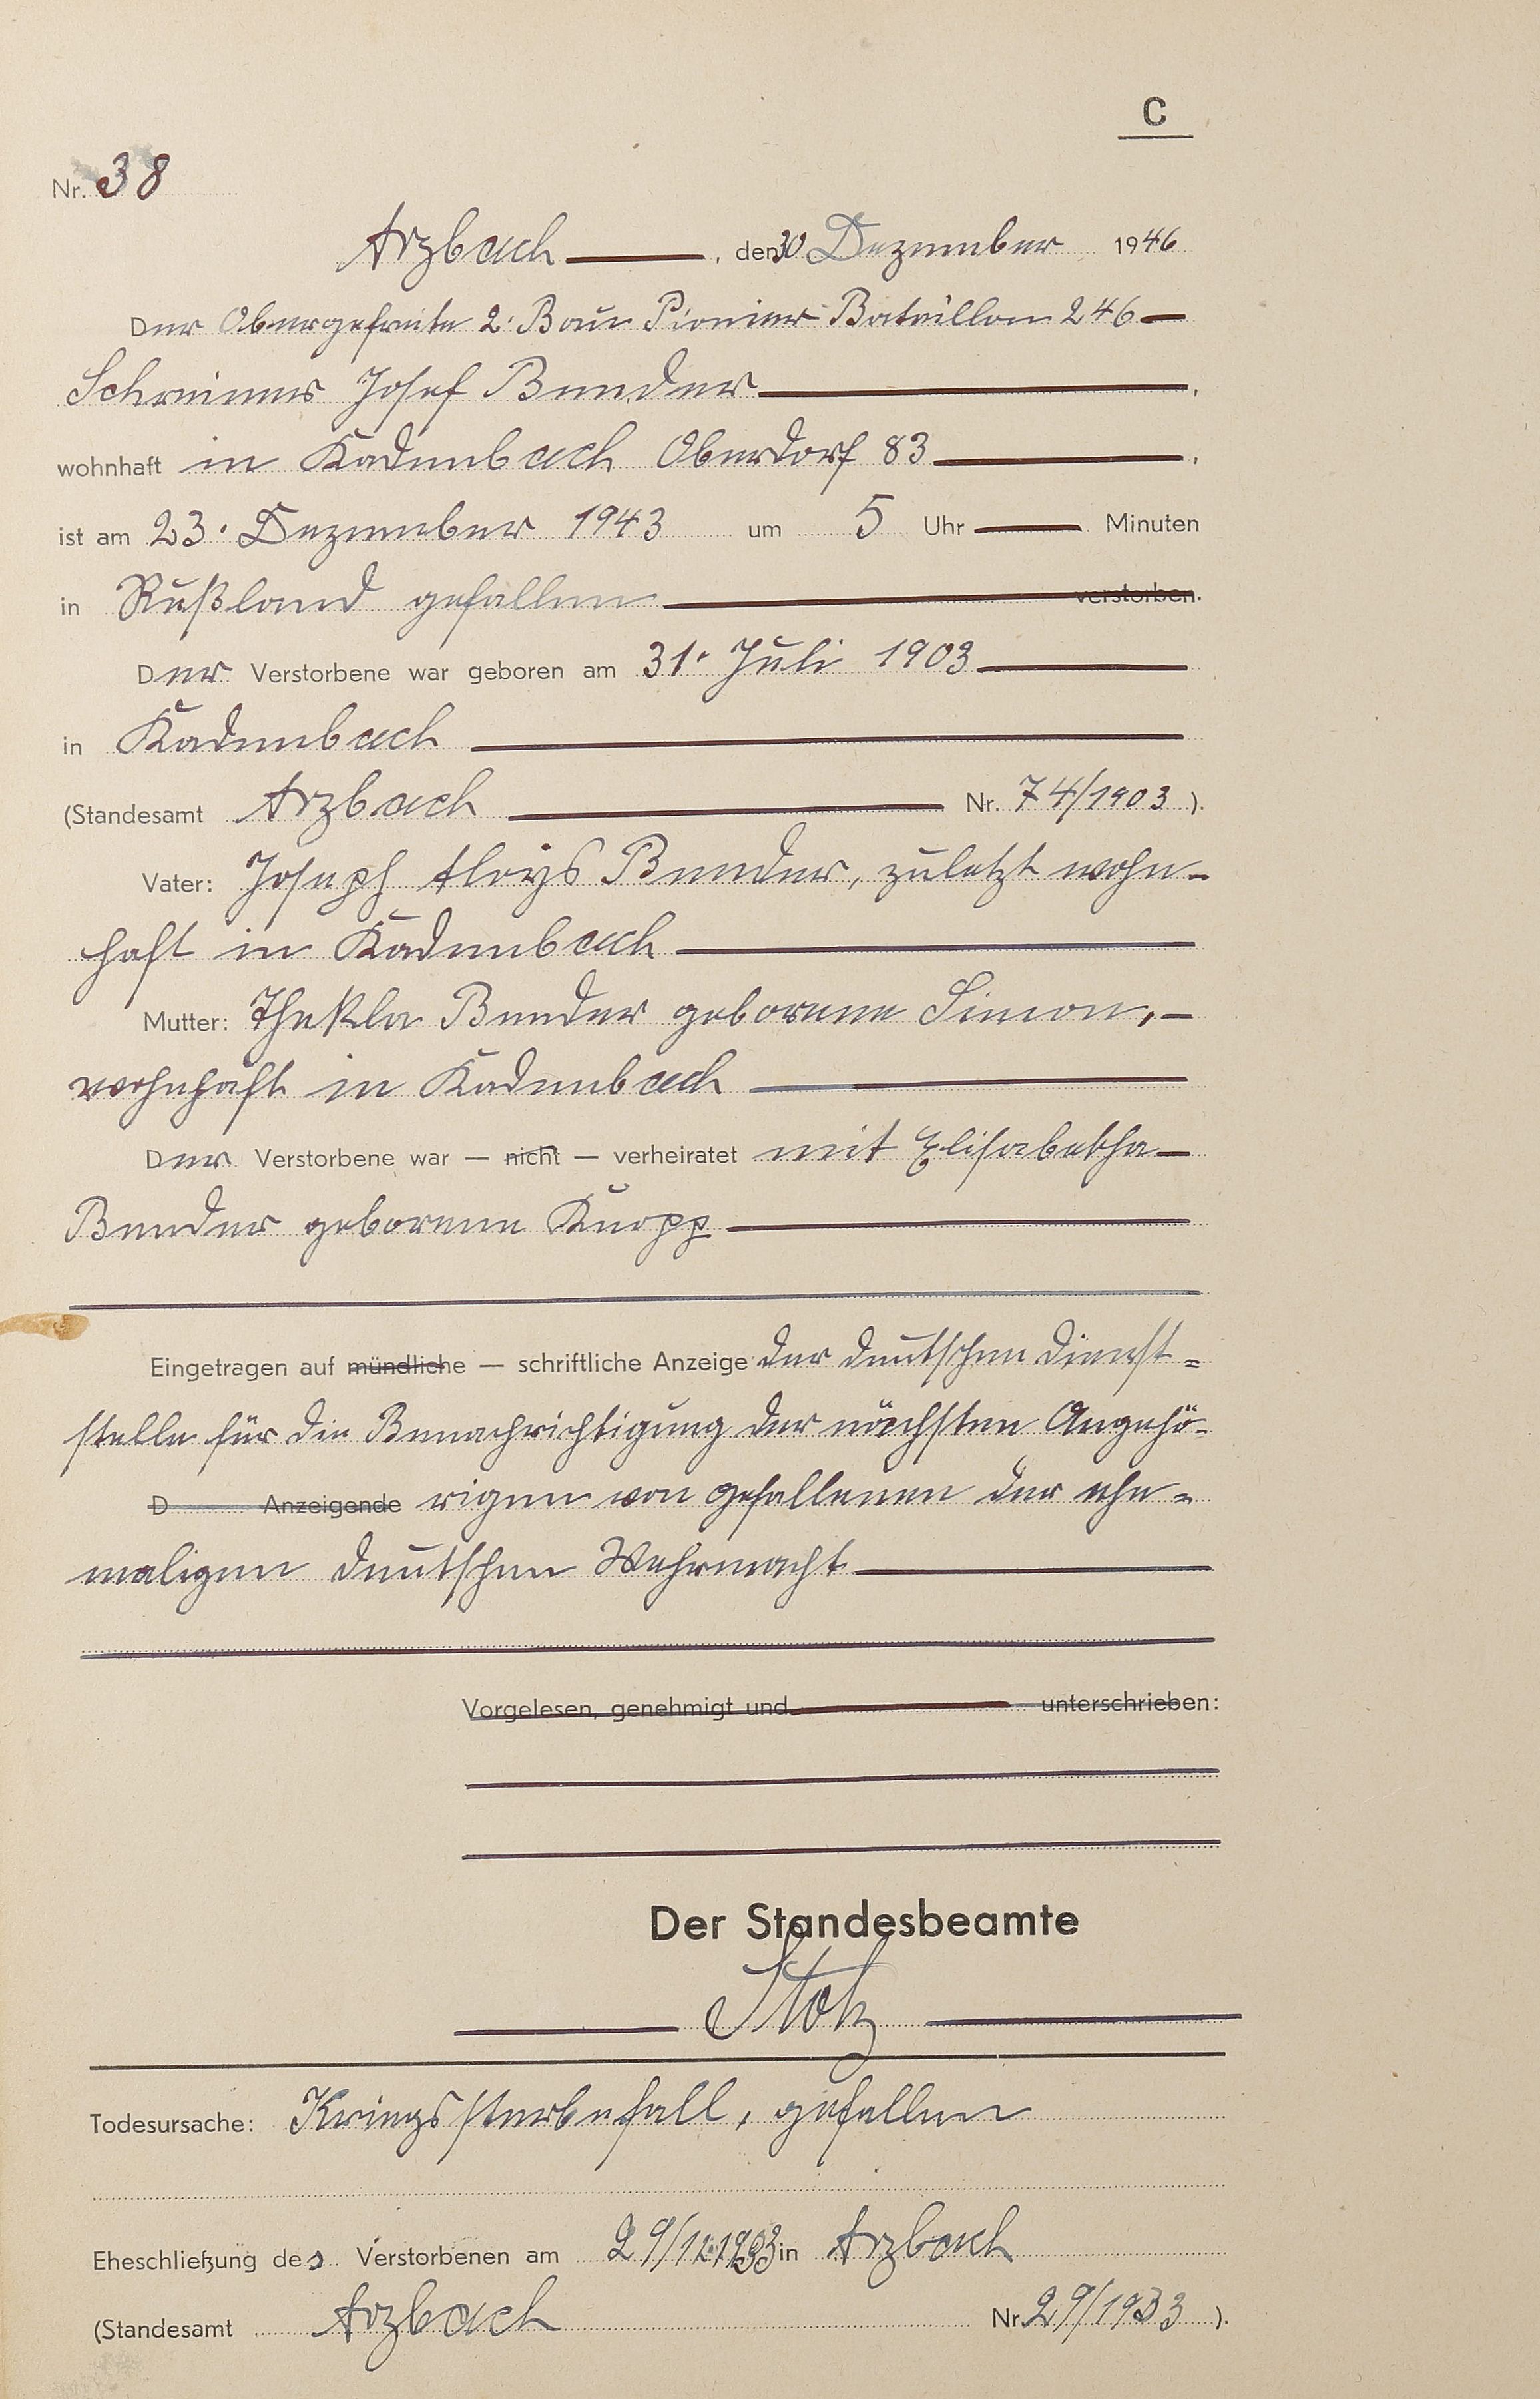 C
Nr. 38
Arzbach, den 30 Dezember 1946
Der Obergefreite 2. Bau Pionier Bataillon 246
Schreiner Josef Bender,
wohnhaft in Kadenbach Oberdorf 83,
ist am 23. Dezember 1943 um 5 Uhr Minuten
in Rußland gefallen verstorben.
Der Verstorbene war geboren am 31. Juli 1903
in Kadenbach
(Standesamt Arzbach Nr. 74/1903).
Vater: Joseph Aloys Bender, zuletzt wohn-
haft in Kadenbach
Mutter: Thekla Bender geborene Simon,
wohnhaft in Kadenbach
Der Verstorbene war — nicht — verheiratet mit Elisabetha
Bender geborene Knopp
Eingetragen auf mündliche — schriftliche Anzeige der deutschen Dienst=
stelle für die Benachrichtigung der nächsten Angehö-
D Anzeigende rigen von gefallenen der ehe=
maligen deutschen Wehrmacht
Vorgelesen, genehmigt und unterschrieben:
Der Standesbeamte
Stotz
Todesursache: Kriegssterbefall, gefallen
Eheschließung des Verstorbenen am 29/12 1933 in Arzbach
(Standesamt Arzbach Nr. 29/1933).